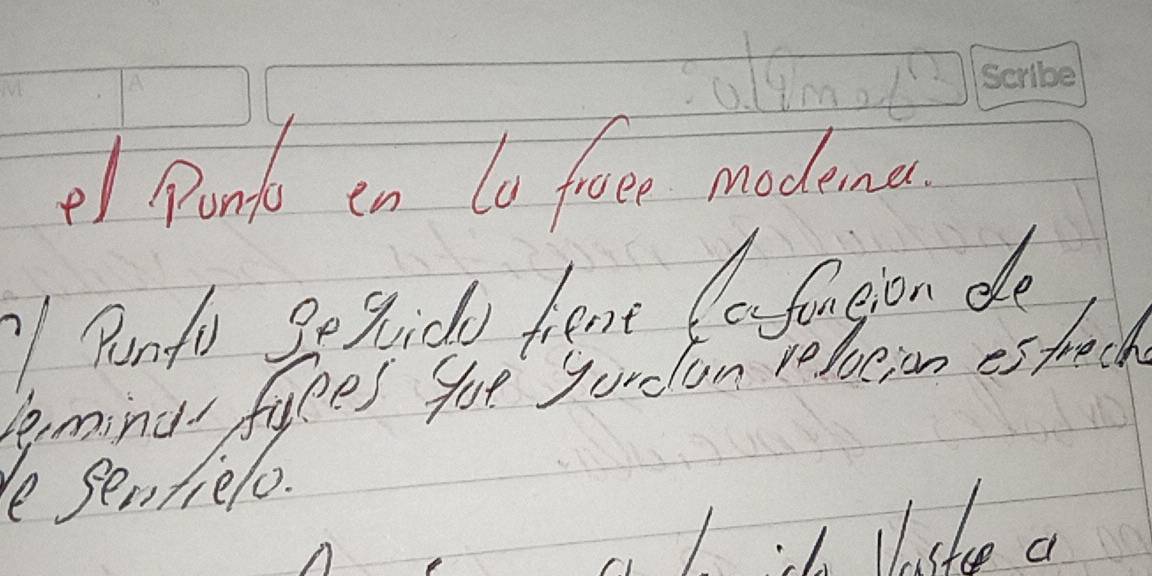 Scribe
el Punto en la frace moderna.
el Punto Seguido tiene la funcion de
terminar fraces que gurdan relacion estrecha
de sentido.
a